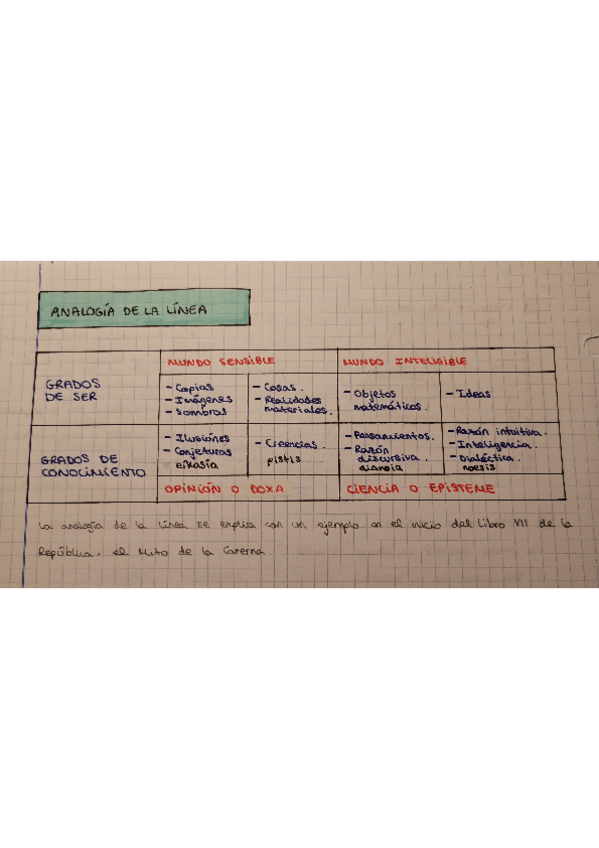 ANALOGÍA DE LA LÍNEA
MUNDO SENSIBLE
MUNDO INTELIGIBLE
GRADOS
DE SER
- Copias
- Imágenes
- Sombras
- Cosas.
- Realidades
materiales.
- Objetos
matemáticos.
- Ideas
GRADOS DE
CONOCIMIENTO
- Ilusiónes
- Conjeturas
eikasía
- Creencias.
pistis
- Pensamientos.
- Razón
discursiva.
dianoia
- Razón intuitiva.
- Inteligencia.
- Dialéctica.
noesis
OPINIÓN O DOXA
CIENCIA O EPISTEME
La analogía de la línea se explica con un ejemplo en el inicio del Libro VII de la
República, el Mito de la Caverna.